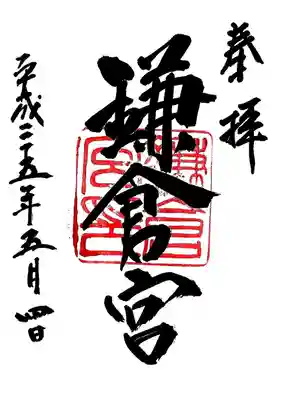 奉拝
鎌倉宮
平成二十五年五月四日